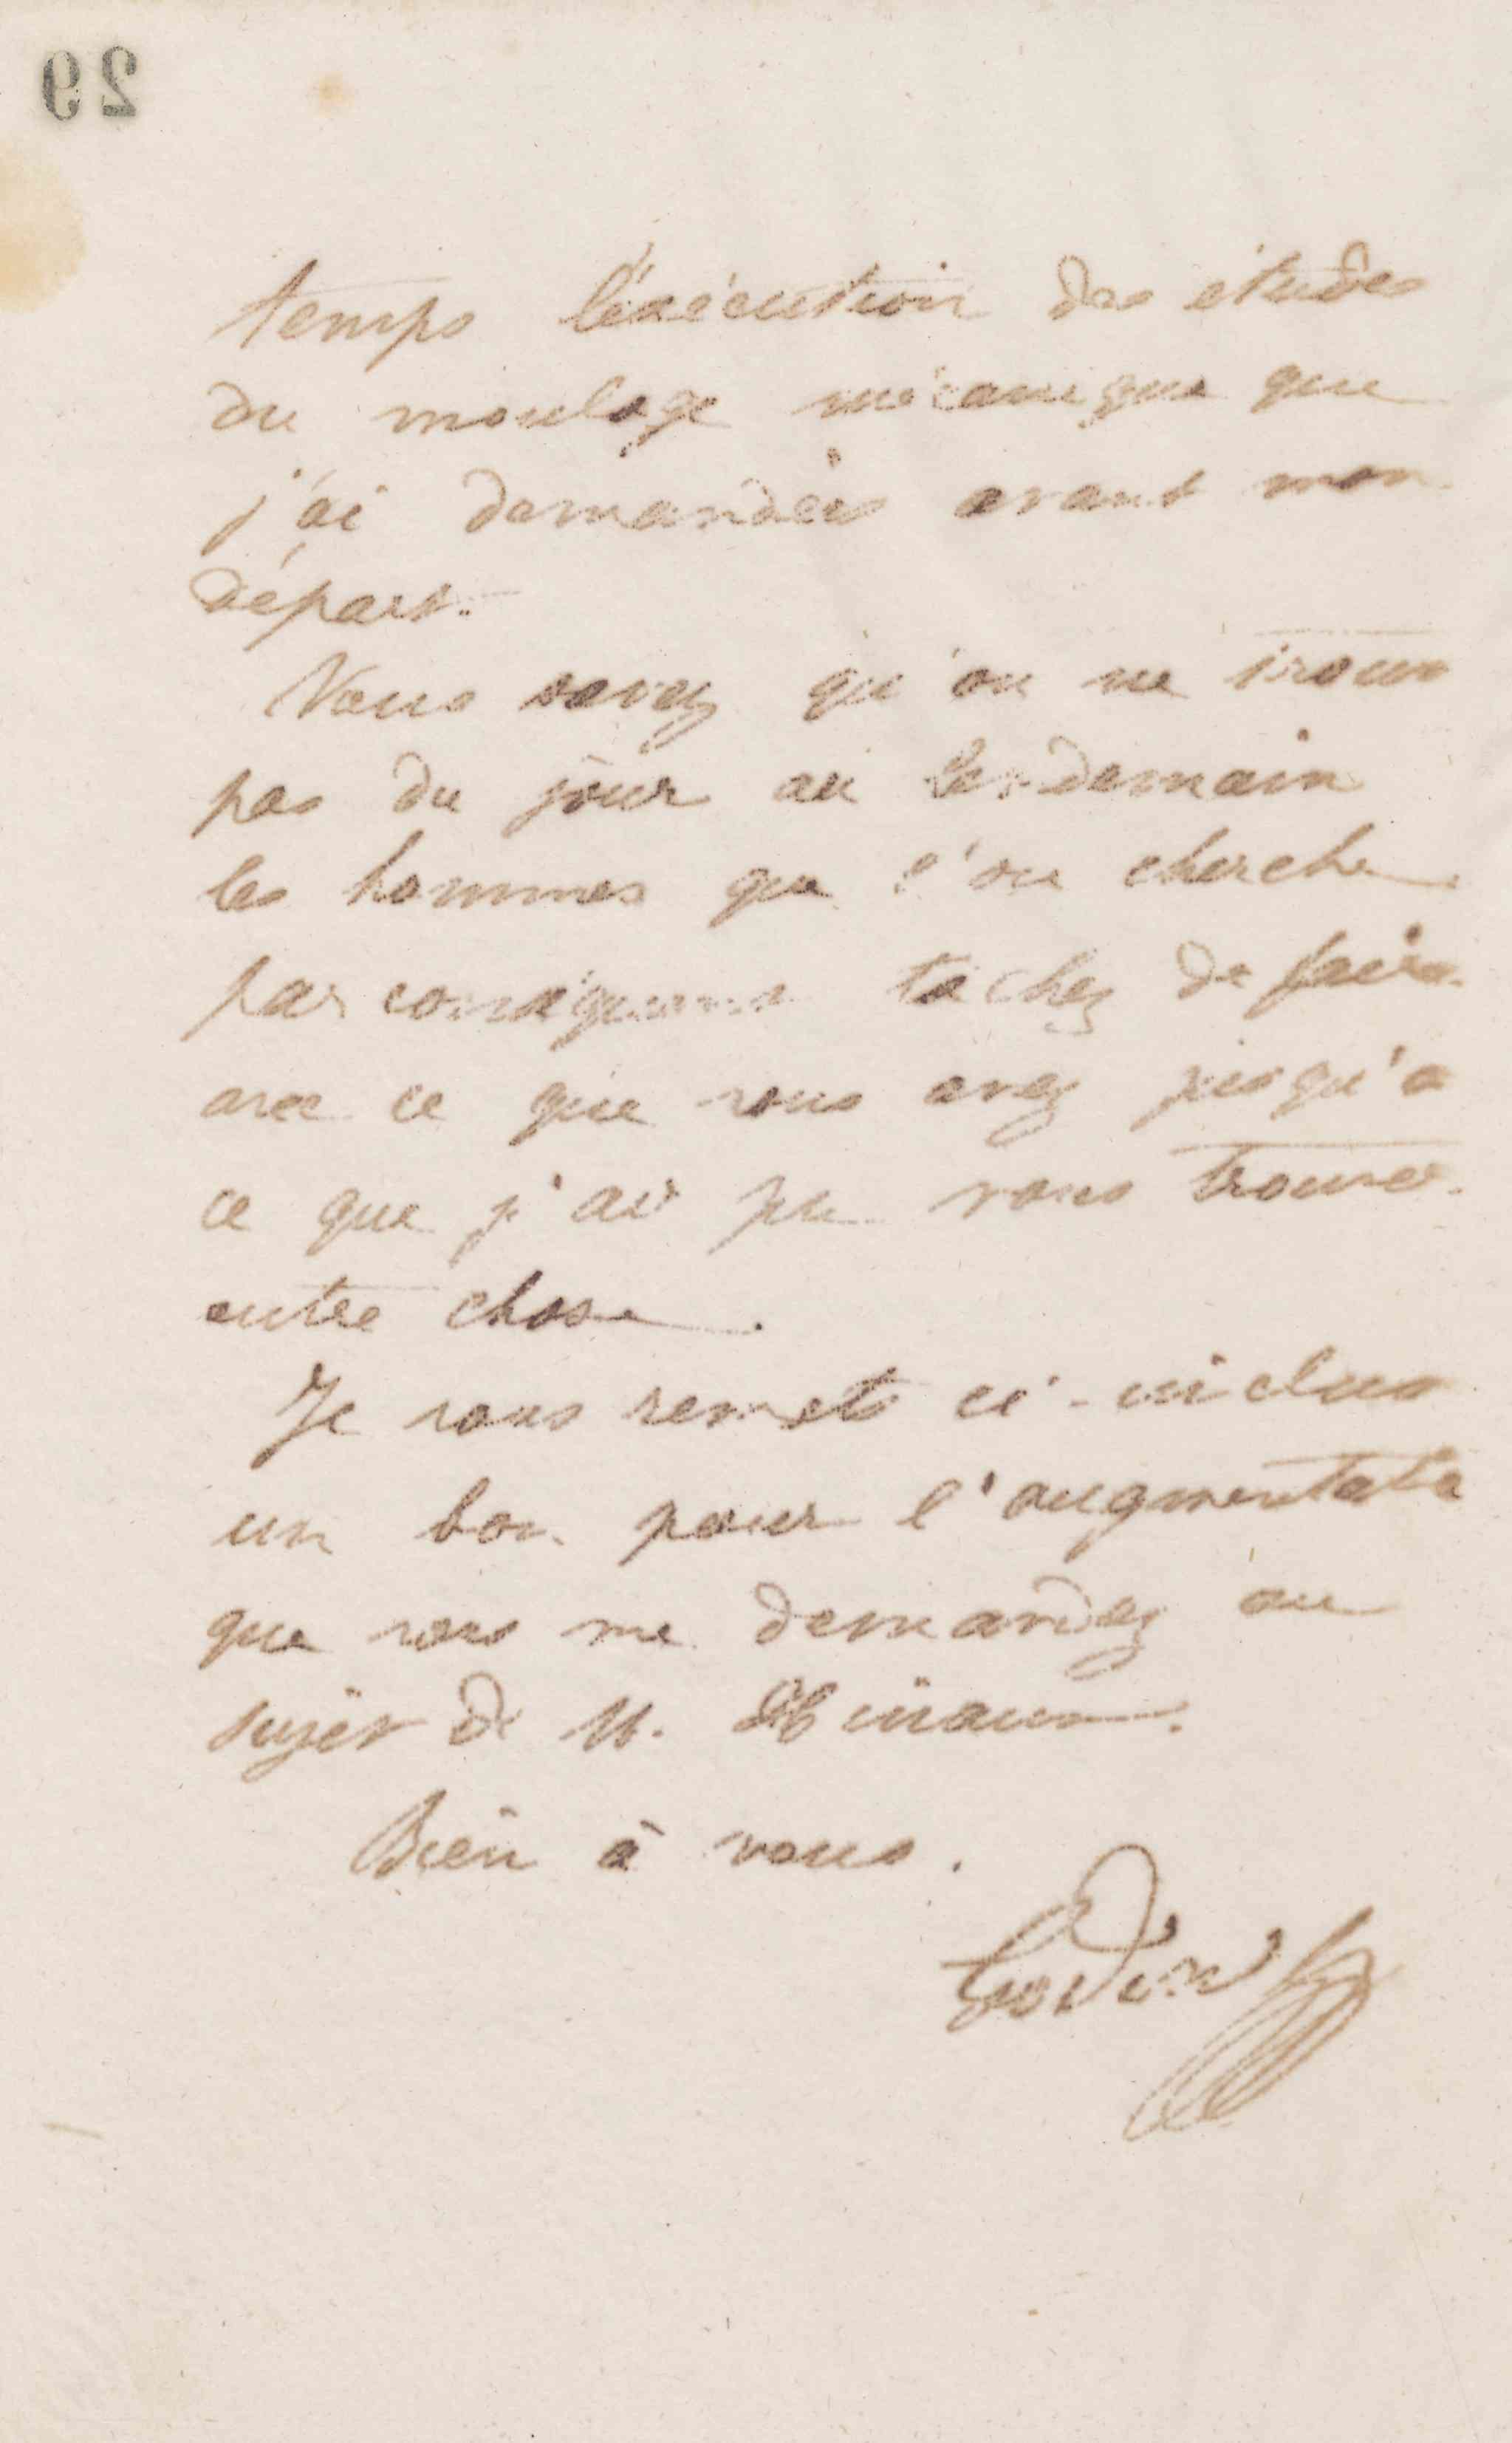 29
temps l'éxécution des études
du moulage mécanique que
j'ai demandées avant mon
départ.
Vous savez qu'on ne trouve
pas du jour au lendemain
les hommes que l'on cherche
par conséquent tachez de faire
avec ce que vous avez jusqu'à
ce que j'ai pu vous trouver
autre chose.
Je vous remets ci-inclus
un bon pour l'augmentat.
que vous me demandez au
sujet de M.
Bien à vous.
Godin